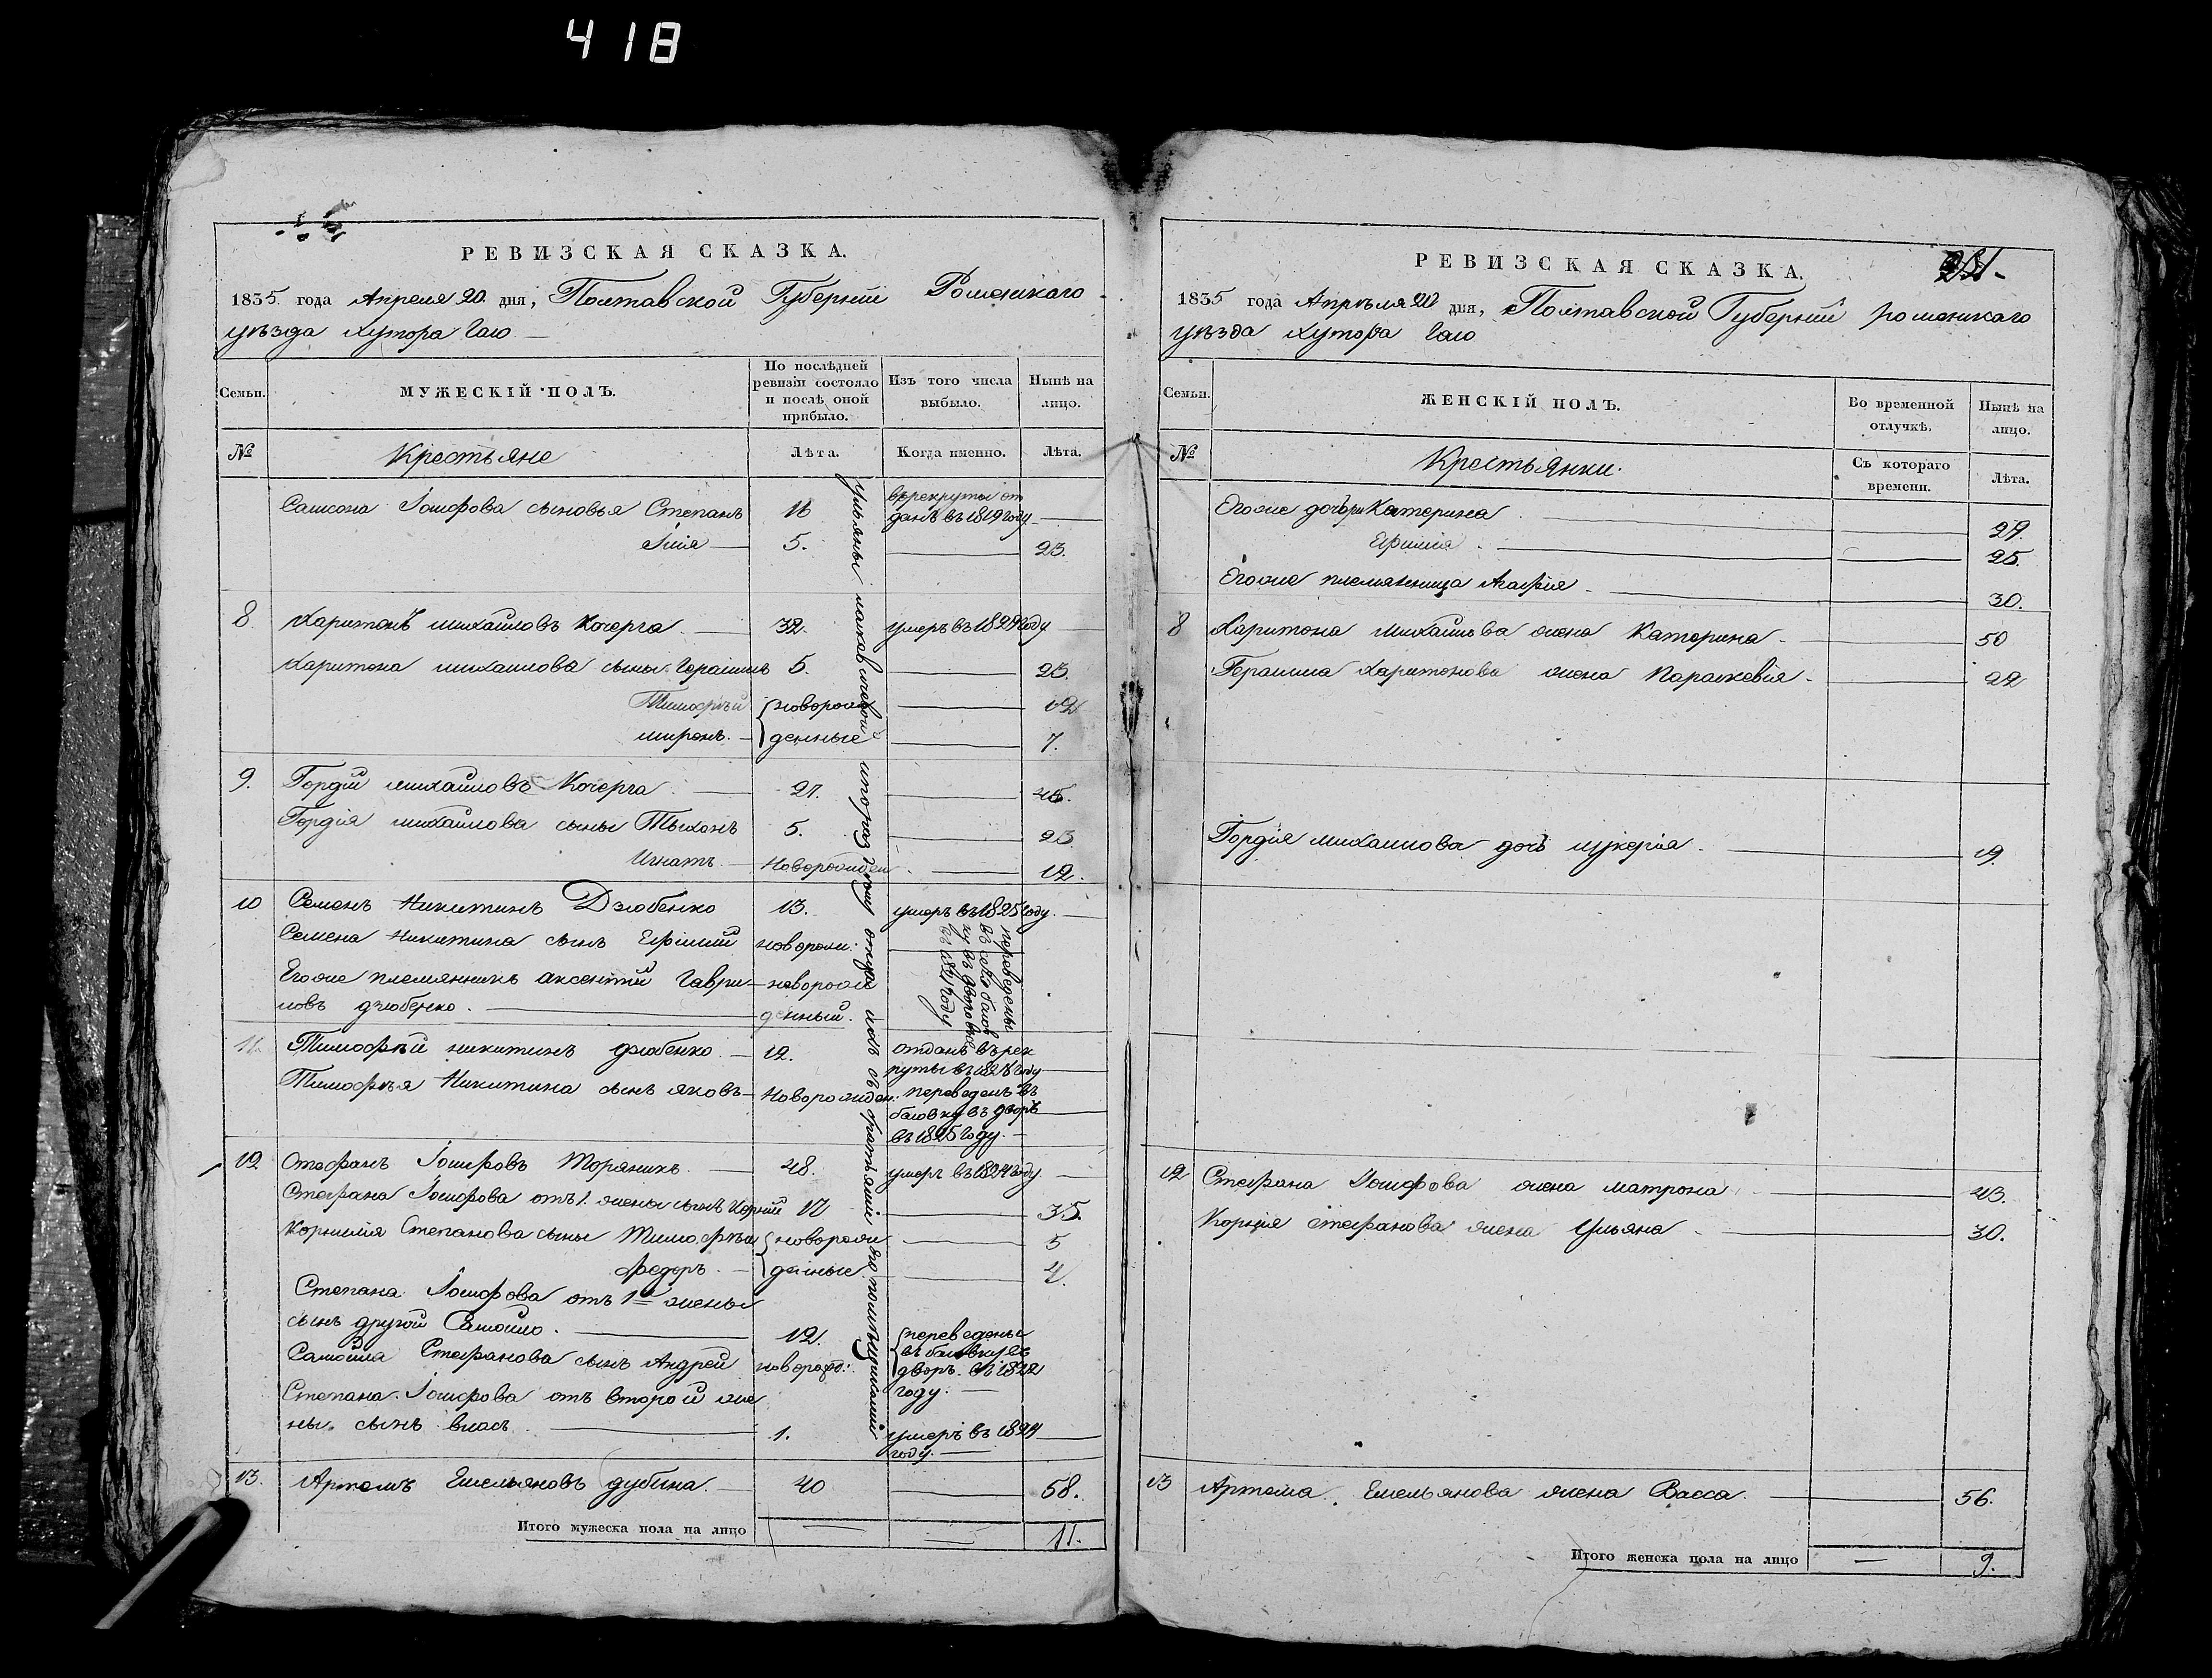 418
РЕВИЗСКАЯ СКАЗКА.
1835 года Апреля 20 дня, Полтавской Губерніи Роменскаго
уѣзда Хутора Гаю
Семьи.
МУЖЕСКІЙ ПОЛЪ.
По послѣдней ревизіи состояло и послѣ оной прибыло.
Изъ того числа выбыло.
Нынѣ на лицо.
№
Крестьяне
Лѣта.
Когда именно.
Лѣта.
Самсона Іосифова сыновья Степанъ 16 въ рекруты отданъ въ 1819 году
5. 23.
8. Харитонъ Михайловъ Кочерга 32. умеръ въ году
Харитона Михаилова сыны Герасимъ 5. 23.
Тимофѣй новорож 12
Миронъ. денные 7.
9. Гордій Михайловъ Кочерга 27. 45.
Гордія Михаилова сыны Тыхонъ 5. 23
Игнатъ. Новорожден 12.
10 Семенъ Никитинъ Дзюбенко 13. умеръ въ 1825 году.
Семена Никитина сынъ Ефимій новорож:
Егоже племянникъ Аксентій Гаври- новорож
ловъ дзюбенко. денный.
переведены въ
11. Тимофѣй никитинъ дзюбенко. 12. отданъ въ рек
руты въ году
Тимофѣя Никитина сынъ яковъ Новорожден. переведенъ въ
баловку въ дворъ
въ 1825 году.
12 Стефанъ Іосифовъ Торяникъ. 48. умеръ въ 1824 году.
Стефана Іосифова отъ 1. жены сынъ Корній 17 35.
Корнилія Степанова сыны Тимофѣй новорож 5
Федоръ. денные 4.
Степана Іосифова отъ 1й жены
сынъ другой Самойло. 12. переведены
Самойла Стефанова сынъ Андрей новорожд: дворъ въ 1822
году.
Степана Іосифова отъ второй же
ны сынъ власъ 1. умеръ въ 1824
году.
13. Артемъ Емельяновъ дубина. 40 58.
Итого мужеска пола на лицо 11.
РЕВИЗСКАЯ СКАЗКА.
1835 года Апрѣля 20 дня, Полтавской Губерніи роменскаго
уѣзда Хутора Гаю
Семьи.
ЖЕНСКІЙ ПОЛЪ.
Во временной отлучкѣ.
Нынѣ на лицо.
№
Крестьянки.
Съ котораго времени.
Лѣта.
Егоже дочери Катерина 27.
Ефимія 25.
Егоже племянница Агафія 30.
8 Харитона Михайлова жена Катерина 50
Герасима Харитонова жена Параскевія 22
Гордія михаилова дочь лукерія 19.
12 Стефана Іосифова жена матрона 43.
Корнія стефанова жена Ульяна 30.
13 Артема Емельянова жена Васса 56.
Итого женска пола на лицо 9.